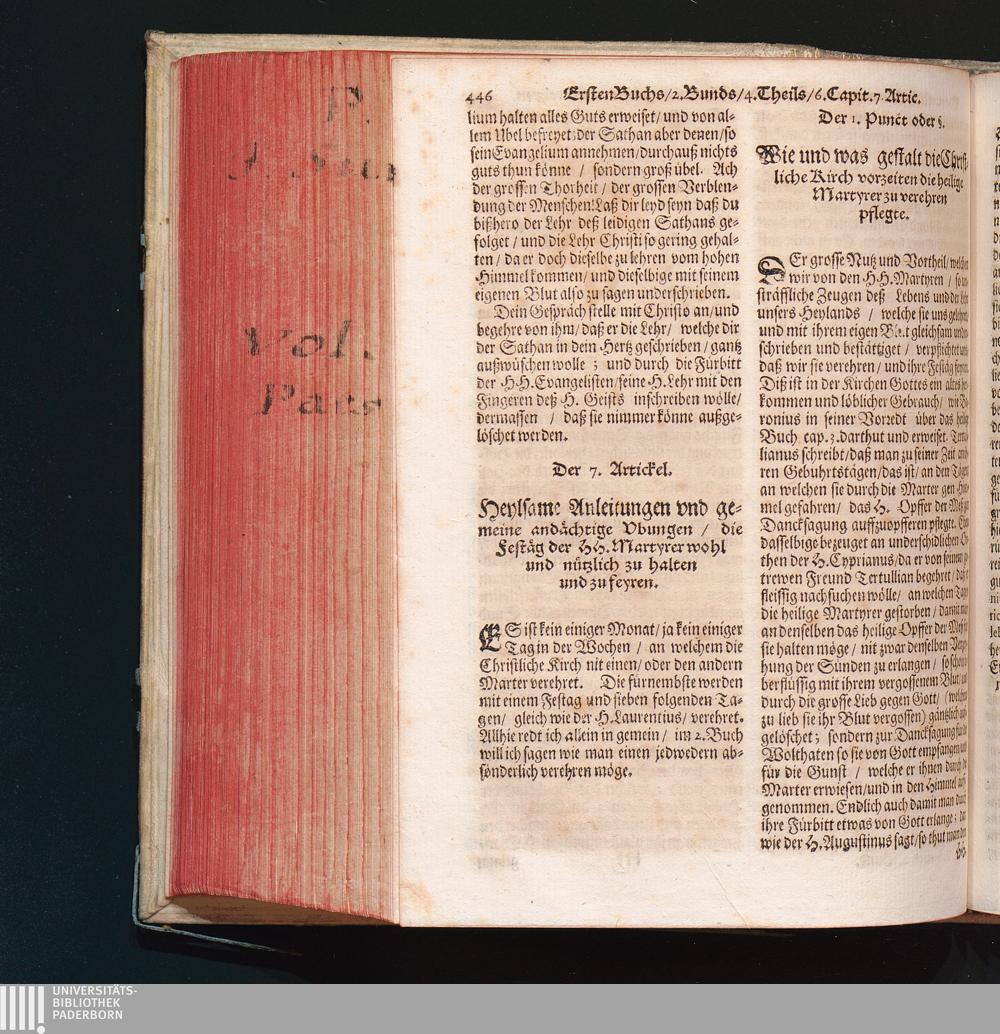 P.
Vol.
Pars
446 Ersten Buchs/2.Bunds/4.Theils/6.Capit.7.Artic.
lium halten alles Guts erweiset/ und von al-
lem Ubel befreyet: der Sathan aber denen/so
sein Evangelium annehmen/durchauß nichts
guts thun könne / sondern groß übel. Ach
der grossen Thorheit / der grossen Verblen-
dung der Menschen! Laß dir leyd seyn daß du
bißhero der Lehr deß leidigen Sathans ge-
folget / und die Lehr Christi so gering gehal-
ten / da er doch dieselbe zu lehren vom hohen
Himmel kommen/ und dieselbige mit seinem
eigenen Blut also zu sagen underschrieben.
Dein Gespräch stelle mit Christo an/und
begehre von ihm/ daß er die Lehr/ welche dir
der Sathan in dein Hertz geschrieben/ gantz
außwüschen wolle ; und durch die Fürbitt
der H.H. Evangelisten/seine H. Lehr mit den
Fingeren deß H. Geists inschreiben wölle/
dermassen / daß sie nimmer könne außge-
löschet werden.
Der 7. Artickel.
Heylsame Anleitungen vnd ge-
meine andächtige Vbungen / die
Festäg der HH. Martyrer wohl
und nützlich zu halten
und zu feyren.
ES ist kein einiger Monat/ ja kein einiger
Tag in der Wochen / an welchem die
Christliche Kirch nit einen/ oder den andern
Marter verehret. Die fürnembste werden
mit einem Festag und sieben folgenden Ta-
gen/ gleich wie der H. Laurentius/ verehret.
Allhie redt ich allein in gemein / im 2. Buch
will ich sagen wie man einen jedwedern ab-
sönderlich verehren möge.
Der 1. Punct oder §.
Wie und was gestalt die Christ-
liche Kirch vorzeiten die heilige
Martyrer zu verehren
pflegte.
DEr grosse Nutz und Vortheil/ welchen
wir von den H.H. Martyren /
sträffliche Zeugen deß Lebens und der Lehr
unsers Heylands / welche sie uns gelehret
und mit ihrem eigen Blut gleichsam under-
schrieben und bestättiget / verpflichtet uns
daß wir sie verehren / und ihre Festäg feyren.
Diß ist in der Kirchen Gottes ein altes her-
kommen und löblicher Gebrauch/ wie Ba-
ronius in seiner Vorredt über das heilig
Buch cap. 3. darthut und erweiset. Tertu-
lianus schreibt/ daß man zu seiner Zeit
ren Gebuhrtstägen/das ist/ an den Tägen
an welchen sie durch die Marter gen Him-
mel gefahren/ das H. Opffer der Meß zur
Dancksagung auffzuopfferen pflegte. Eben
dasselbige bezeuget an underschidlichen Or-
then der H. Cyprianus/ da er von seinem ge-
trewen Freund Tertullian begehret/ daß er
fleissig nachsuchen wölle/ an welchen Tagen
die heilige Martyrer gestorben / damit man
an denselben das heilige Opffer der Meß für
sie halten möge / nit zwar denselben Verzey-
hung der Sünden zu erlangen / so schon
berflüssig mit ihrem vergossenem Blut/ und
durch die grosse Lieb gegen Gott/ (welchem
zu lieb sie ihr Blut vergossen) gäntzlich auß-
gelöschet ; sondern zur Dancksagung für die
Wolthaten so sie von Gott empfangen/und
für die Gunst / welche er ihnen durch die
Marter erwiesen/und in den Himmel auff-
genommen. Endlich auch damit man durch
ihre Fürbitt etwas von Gott erlange ;
wie der H. Augustinus sagt/ so thut man den
HH.
UNIVERSITÄTS-
BIBLIOTHEK
PADERBORN